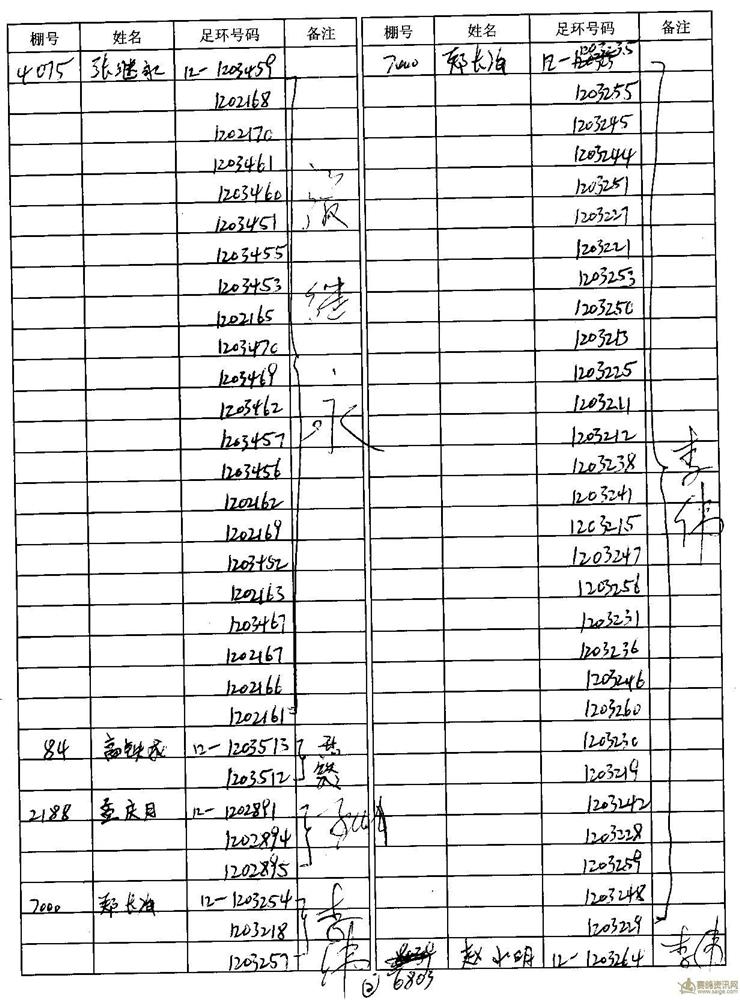 棚号 姓名 足环号码 备注
4075 张继永 12-1203459
1202168
1202170
1203461
1203460
1203451
1203455
1203453
1202165
1203470
1203469
1203462
1203457
1203456
1202162
1202169
1203452
1202163
1203467
1202167
1202166
1202161
张继永
84 高铁成 12-1203513
1203512
2188 孟庆月 12-1202891
1202894
1202895
7000 郑长海 12-1203254
1203218
1203257
李伟
棚号 姓名 足环号码 备注
7000 郑长海 12-
1203255
1203245
1203244
1203251
1203227
1203221
1203253
1203250
1203213
1203225
1203211
1203212
1203238
1203241
1203215
1203247
1203256
1203231
1203236
1203246
1203260
1203230
1203219
1203242
1203228
1203259
1203248
1203229
李伟
6803 赵小明 12-1203264 李伟
②
赛鸽资讯网
www.saige.com